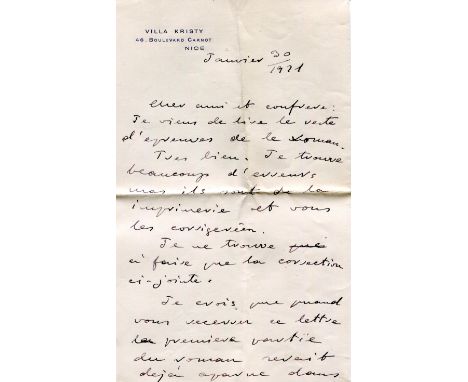 VILLA KRISTY
46, BOULEVARD CARNOT
NICE
Janvier 30/1921
Cher ami et confrere:
Je viens de lire le reste
d'epreuves de le roman.
Tres bien. Je trouve
beaucoup d'erreurs
mas ils sont de la
imprimerie et vous
les corrigereèn.
Je ne trouve
à faire que la correction
ci-jointe.
Je crois que quand
vous recevrer ce lettre
la premiere partïe
du roman serait
dejà aparue dans